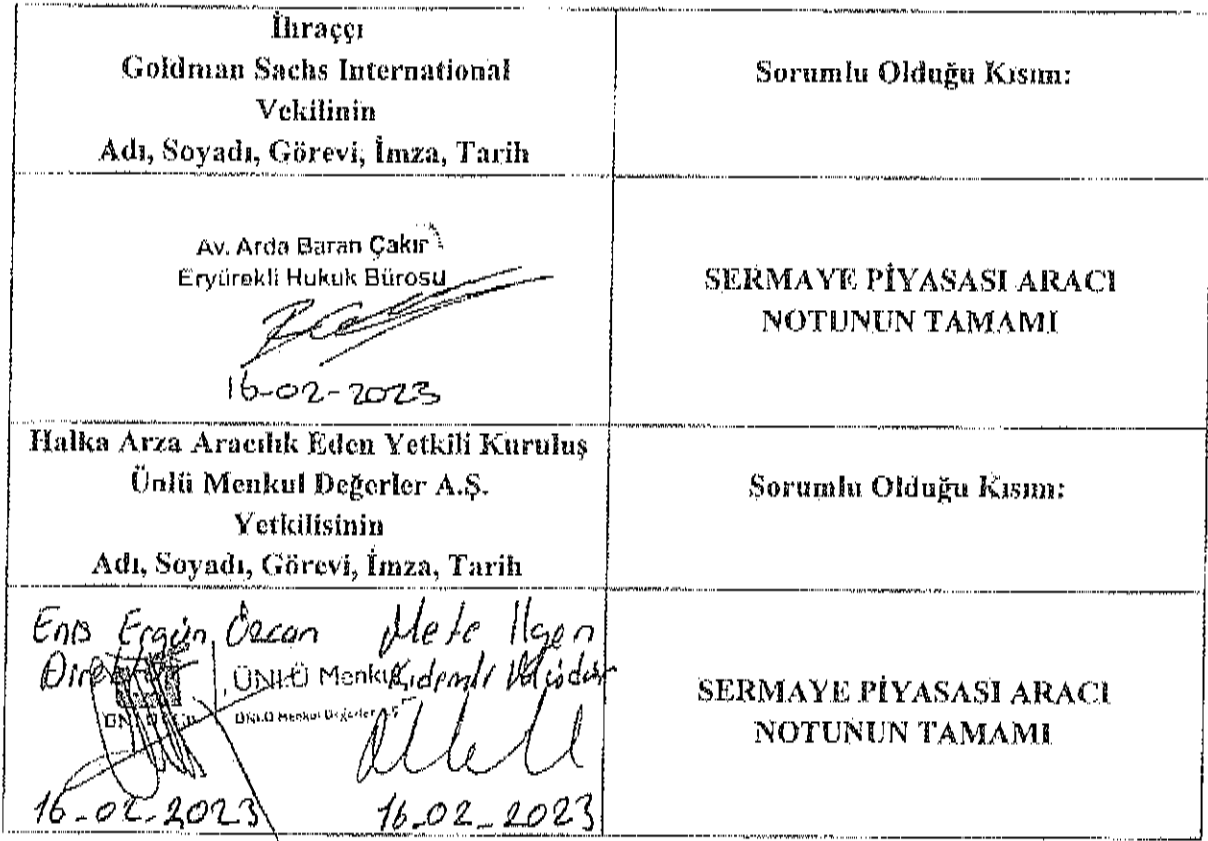 İhraççı
Goldman Sachs International
Vekilinin
Adı, Soyadı, Görevi, İmza, Tarih
Sorumlu Olduğu Kısım:
Av. Arda Baran Çakır
Eryürekli Hukuk Bürosu
16-02-2023
SERMAYE PİYASASI ARACI
NOTUNUN TAMAMI
Halka Arza Aracılık Eden Yetkili Kuruluş
Ünlü Menkul Değerler A.Ş.
Yetkilisinin
Adı, Soyadı, Görevi, İmza, Tarih
Sorumlu Olduğu Kısım:
Ergün Özcan
Mete Ilgen
ÜNLÜ Menkul
Kıdemli Müdür
ÜNLÜ Menkul Değerler A.Ş.
16-02-2023
16-02-2023
SERMAYE PİYASASI ARACI
NOTUNUN TAMAMI